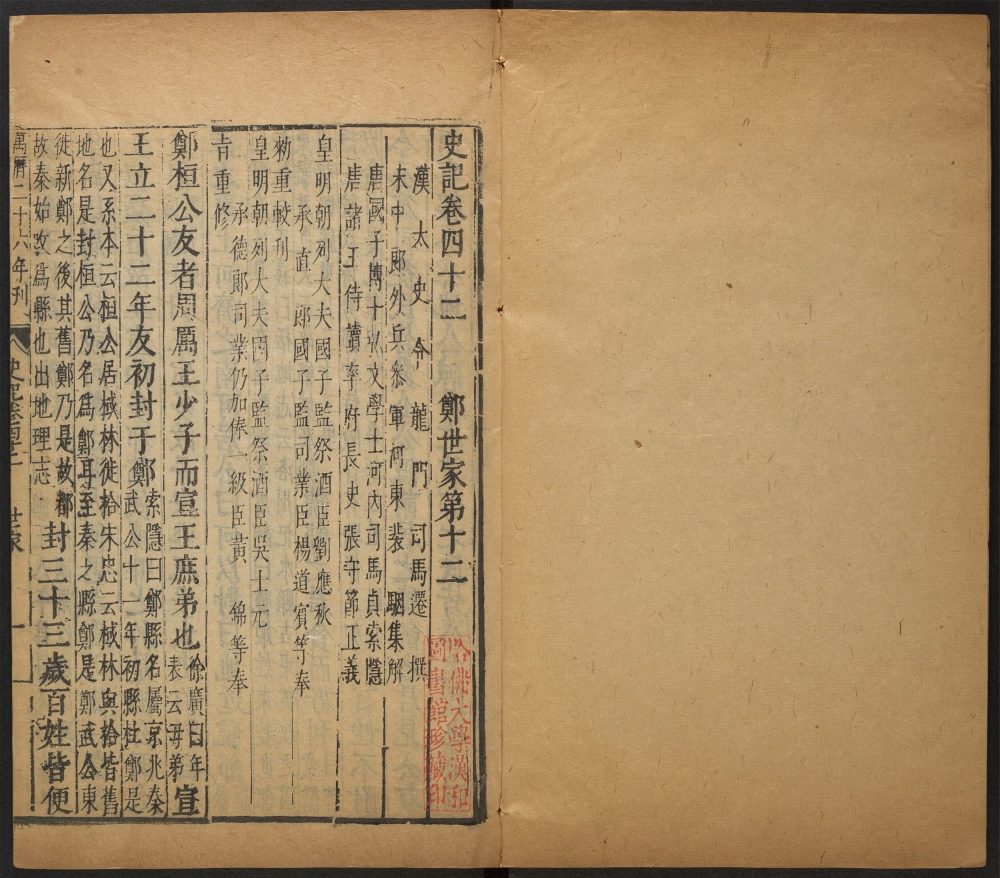 史記卷四十二　鄭世家第十二
漢太史令龍門司馬遷撰
宋中郎外兵參軍河東裴駰集解
唐國子博士弘文學士河內司馬貞索隱
唐諸王侍讀率府長史張守節正義
皇明朝列大夫國子監祭酒臣劉應秋
承直郎國子監司業臣楊道賓等奉
勑重較刊
皇明朝列大夫國子監祭酒臣吳士元
承德郎司業仍加俸一級臣黃錦等奉
旨重修
鄭桓公友者周厲王少子而宣王庶弟也
徐廣曰年
表云母弟
宣
王立二十二年友初封于鄭
索隱曰鄭縣名屬京兆秦
武公十一年初縣杜鄭是
也又系本云桓公居棫林徙拾宋忠云棫林與拾皆舊
地名是封桓公乃名為鄭耳至秦之縣鄭是鄭武公東
徙新鄭之後其舊鄭乃是故都
故秦始改為縣也出地理志
封三十三歲百姓皆便
萬曆二十六年刊
史記卷四十二
世家
一
哈佛大學漢和
圖書館珍藏印